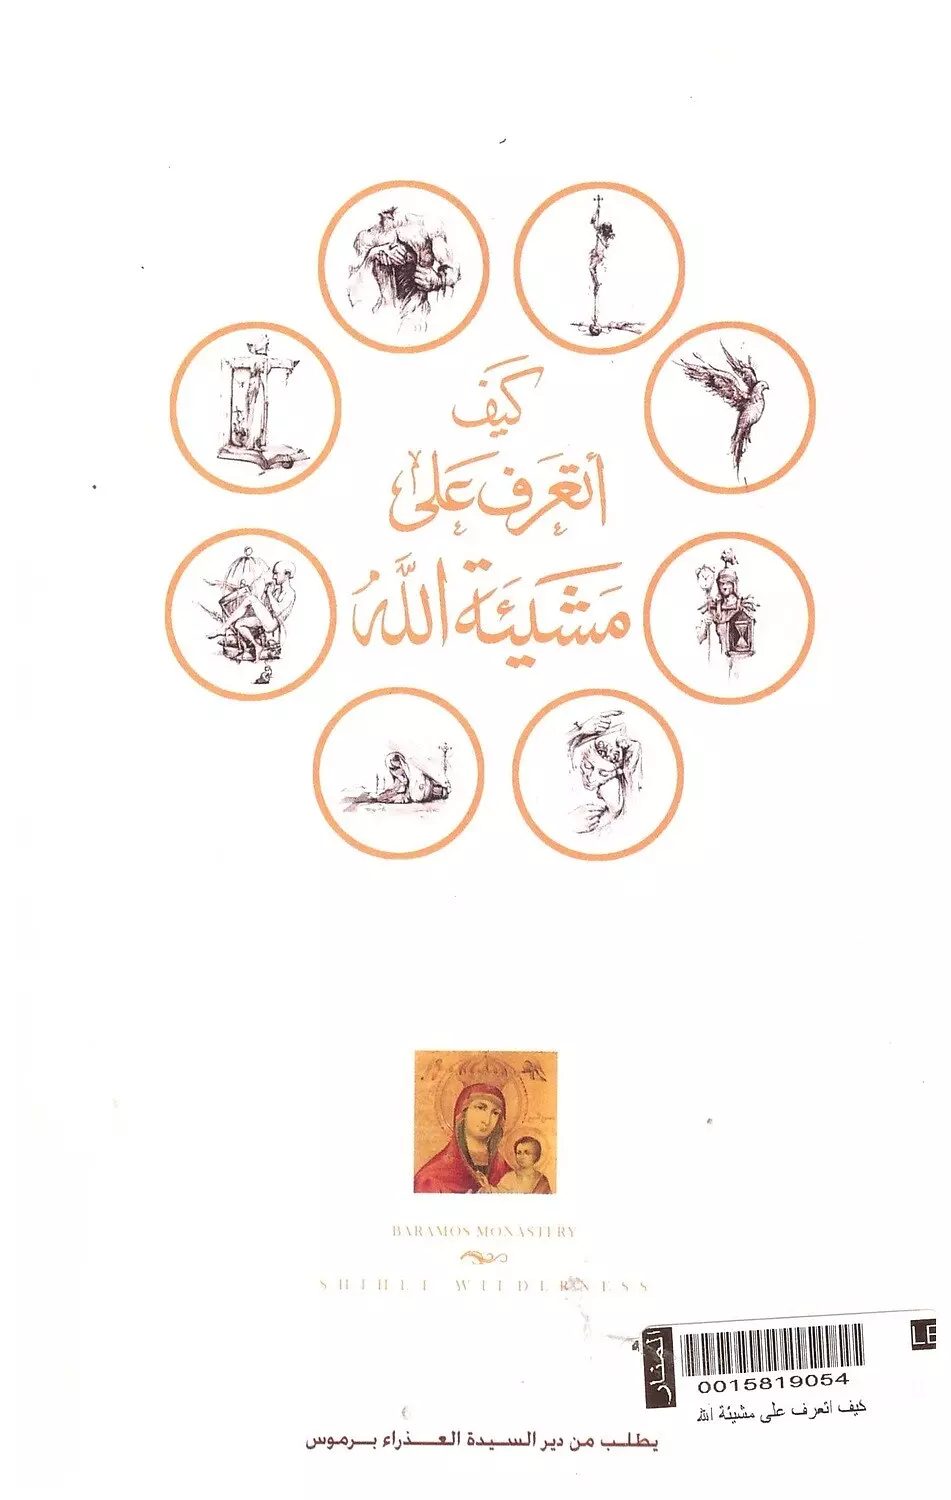 كيف
أتعرف على
مشيئة الله
BARAMOS MONASTERY
SHIHET WILDERNESS
المنار
LE
0015819054
كيف اتعرف على مشيئة الله
يطلب من دير السيدة العذراء برموس